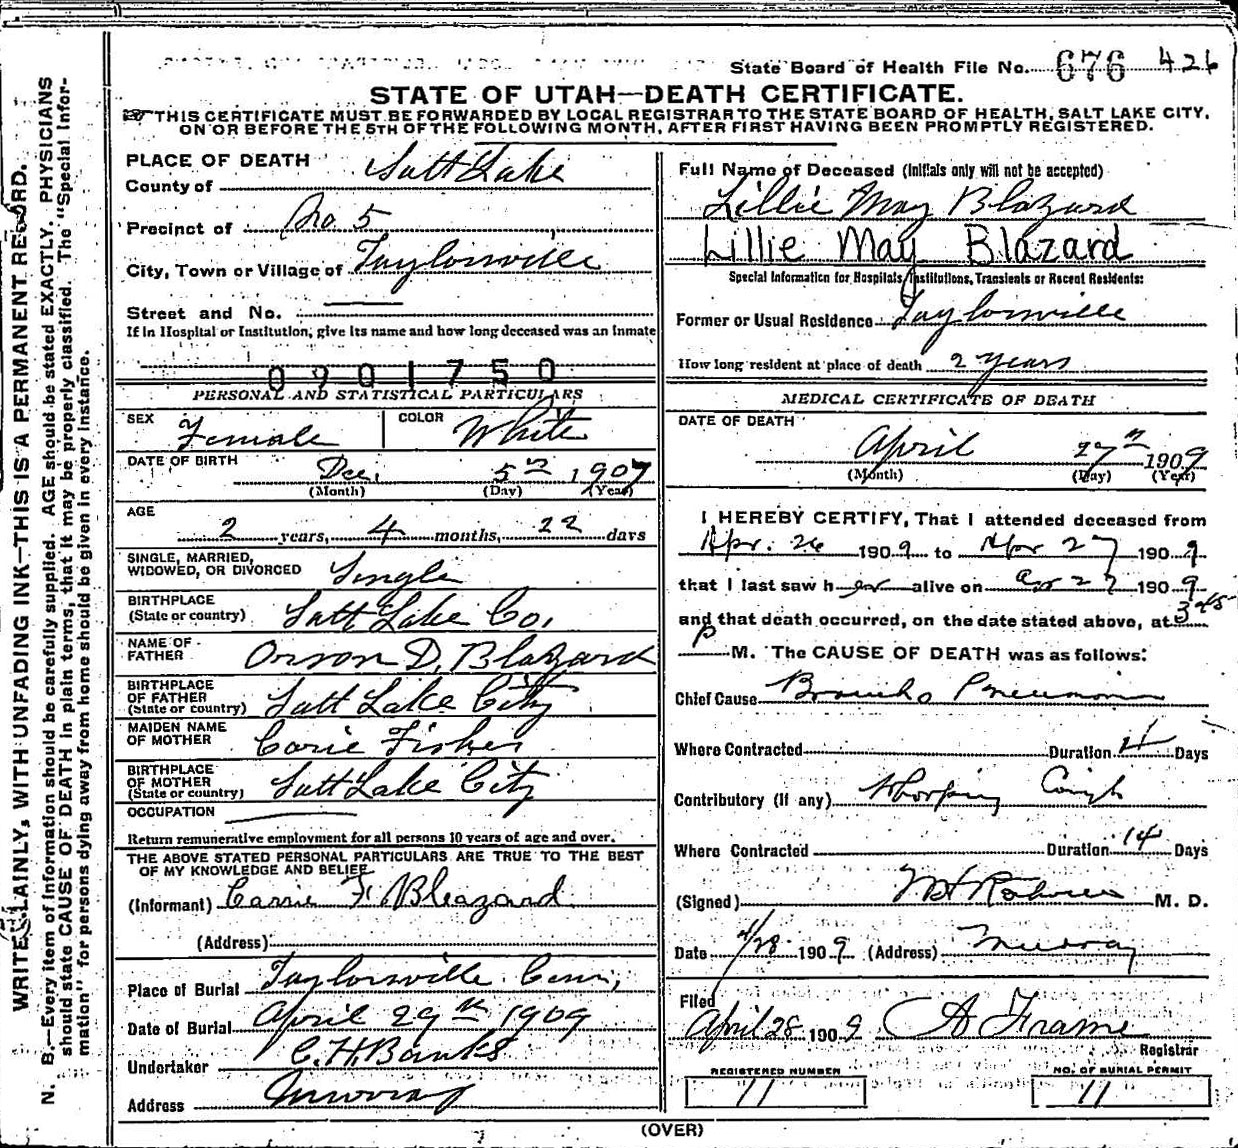 State Board of Health File No. 676 426
STATE OF UTAH—DEATH CERTIFICATE.
THIS CERTIFICATE MUST BE FORWARDED BY LOCAL REGISTRAR TO THE STATE BOARD OF HEALTH, SALT LAKE CITY,
ON OR BEFORE THE 5TH OF THE FOLLOWING MONTH, AFTER FIRST HAVING BEEN PROMPTLY REGISTERED.
WRITE PLAINLY, WITH UNFADING INK—THIS IS A PERMANENT RECORD.
N. B.—Every item of information should be carefully supplied. AGE should be stated EXACTLY. PHYSICIANS
should state CAUSE OF DEATH in plain terms, that it may be properly classified. The "Special Infor-
mation" for persons dying away from home should be given in every instance.
PLACE OF DEATH
County of Salt Lake
Precinct of No. 5
City, Town or Village of Taylorsville
Street and No.
If in Hospital or Institution, give its name and how long deceased was an inmate
0901750
PERSONAL AND STATISTICAL PARTICULARS
SEX Female COLOR White
DATE OF BIRTH Dec. 5th 1907
(Month) (Day) (Year)
AGE
2 years, 4 months, 22 days
SINGLE, MARRIED,
WIDOWED, OR DIVORCED Single
BIRTHPLACE
(State or country) Salt Lake Co.
NAME OF
FATHER Orson D. Blazzard
BIRTHPLACE
OF FATHER
(State or country) Salt Lake City
MAIDEN NAME
OF MOTHER Carie Fisher
BIRTHPLACE
OF MOTHER
(State or country) Salt Lake City
OCCUPATION
Return remunerative employment for all persons 10 years of age and over.
THE ABOVE STATED PERSONAL PARTICULARS ARE TRUE TO THE BEST
OF MY KNOWLEDGE AND BELIEF
(Informant) Carrie F. Bleazard
(Address)
Place of Burial Taylorsville Cem,
Date of Burial April 29th 1909
Undertaker C. H. Banks
Address Murray
Full Name of Deceased (Initials only will not be accepted)
Lillie May Blazard
Lillie May Blazard
Special Information for Hospitals, Institutions, Transients or Recent Residents:
Former or Usual Residence Taylorsville
How long resident at place of death 2 years
MEDICAL CERTIFICATE OF DEATH
DATE OF DEATH
April 27th 1909
(Month) (Day) (Year)
I HEREBY CERTIFY, That I attended deceased from
Apr. 26 1909 to Apr 27 1909
that I last saw her alive on Apr 27 1909
and that death occurred, on the date stated above, at 3-45
P M. The CAUSE OF DEATH was as follows:
Chief Cause Broncho Pneumonia
Where Contracted Duration Days
Contributory (if any) Whooping Cough
Where Contracted Duration 14 Days
(Signed) M. D.
Date 4/28 1909 (Address) Murray
Filed
April 28 1909 A Frame
Registrar
REGISTERED NUMBER
11
NO. OF BURIAL PERMIT
11
(OVER)